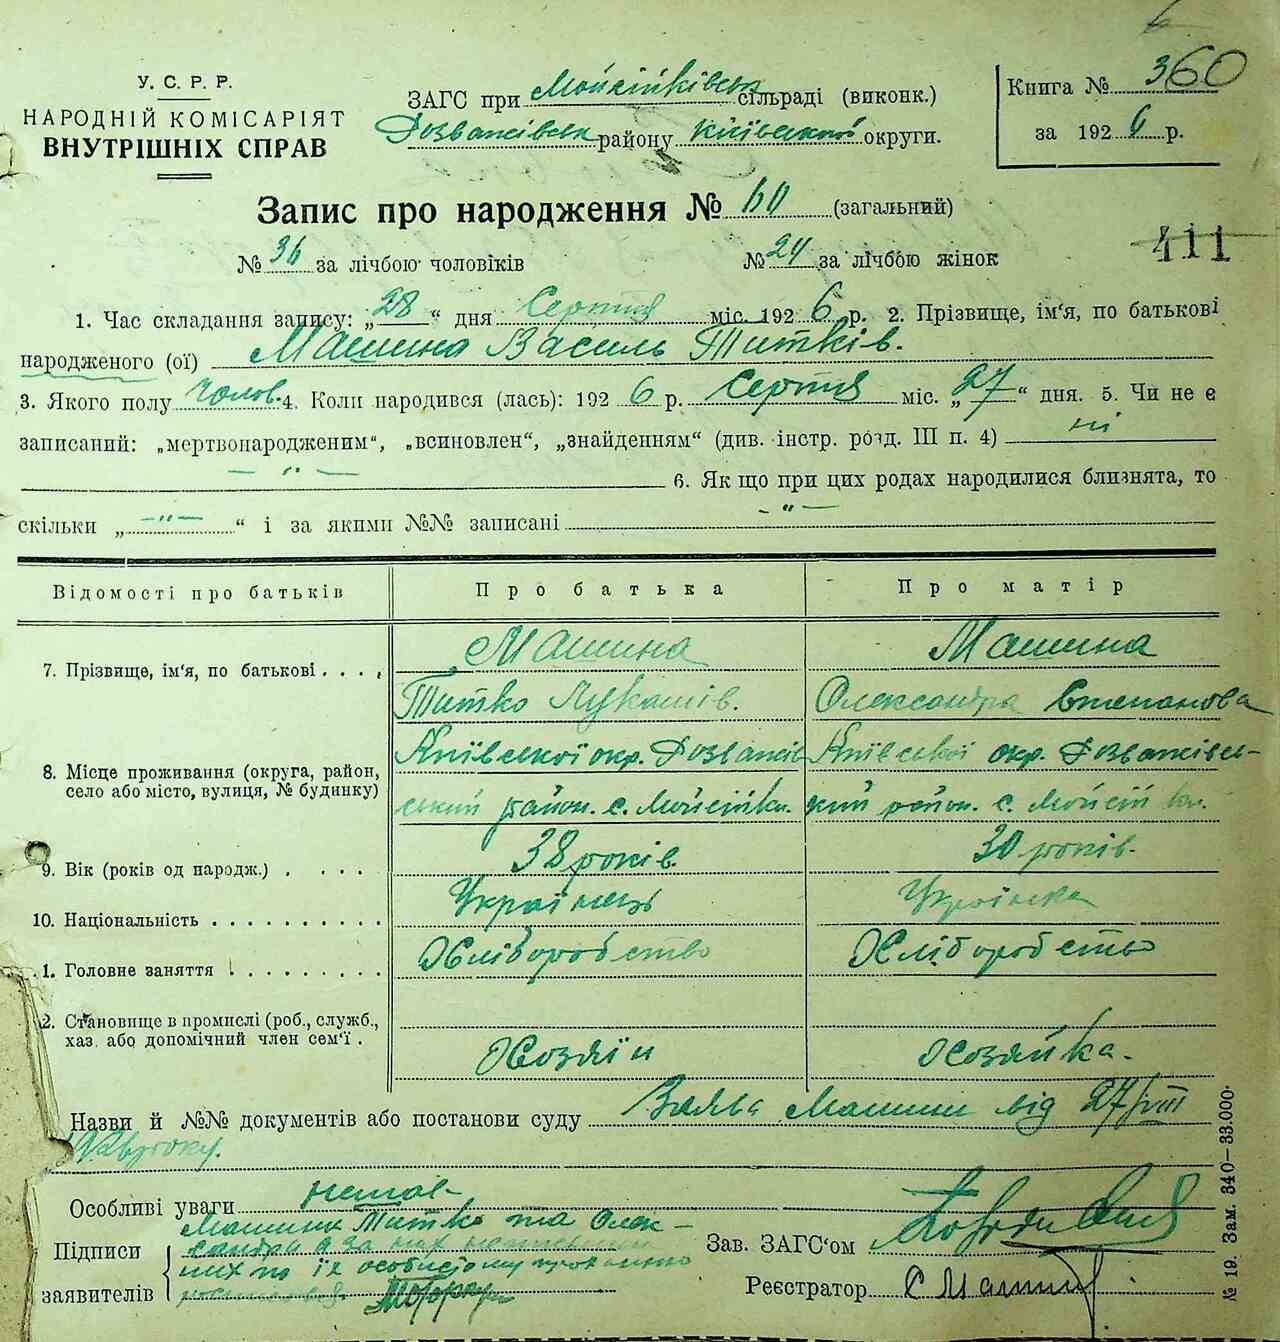 360
У. С. Р. Р.
НАРОДНІЙ КОМІСАРІЯТ
ВНУТРІШНІХ СПРАВ
ЗАГС при Мойсійківськ сільраді (виконк.)
Розважівськ району Київської округи.
Книга №
за 1926 р.
Запис про народження № 60 (загальний)
№ 36 за лічбою чоловіків № 24 за лічбою жінок
411
1. Час складання запису: „28“ дня Серпня міс. 1926 р. 2. Прізвище, ім'я, по батькові
народженого (ої) Машина Василь Титків.
3. Якого полу чолов. 4. Коли народився (лась): 1926 р. Серпня міс. „27“ дня. 5. Чи не є
записаний: „мертвонародженим“, „всиновлен“, „знайденням“ (див. інстр. розд. III п. 4) ні
— " — 6. Як що при цих родах народилися близнята, то
скільки „ — " — “ і за якими №№ записані — " —
Відомості про батьків Про батька Про матір
7. Прізвище, ім'я, по батькові . . . . Машина Машина
Титко Лукашів. Олександра Степанова
8. Місце проживання (округа, район, село або місто, вулиця, № будинку) Київської окр. Розважів Київської окр. Розважівсь-
ський район. с. Мойсійки. кий район. с. Мойсійки.
9. Вік (років од народж.) . . . . 38 років. 30 років.
10. Національність . . . . . . . . . . Українець Українка
1. Головне заняття . . . . . . . . . Хліборобство Хліборобство
2. Становище в промислі (роб., служб., хаз. або допомічний член сем'ї . Хозяїн Хозяйка.
Назви й №№ документів або постанови суду Заява Машини від 27/VIII
року.
Особливі уваги немає
Підписи заявителів Машини Титко та Олек-
сандра а за них неписьмен
них по їх особистому проханню
Зав. ЗАГС'ом
Реєстратор С Машин
№ 19. Зам. 340—33.000.